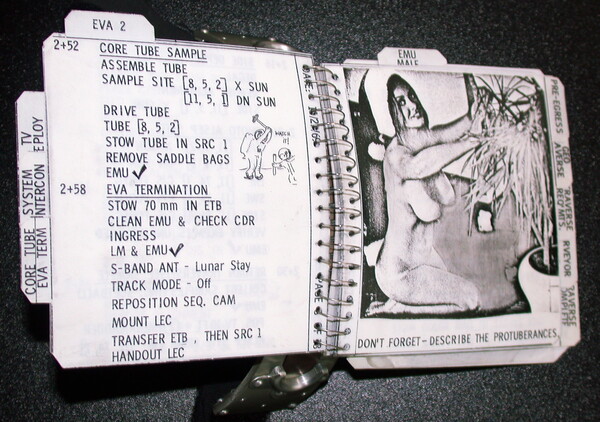 EVA 2
2+52 CORE TUBE SAMPLE
ASSEMBLE TUBE
SAMPLE SITE [8, 5, 2] X SUN
[11, 5, 1] DN SUN
DRIVE TUBE
TUBE [8, 5, 2]
STOW TUBE IN SRC 1
REMOVE SADDLE BAGS
EMU ✓
2+58 EVA TERMINATION
STOW 70 mm IN ETB
CLEAN EMU & CHECK CDR
INGRESS
LM & EMU ✓
S-BAND ANT - Lunar Stay
TRACK MODE - Off
REPOSITION SEQ. CAM
MOUNT LEC
TRANSFER ETB , THEN SRC 1
HANDOUT LEC
CORE TUBE SYSTEM TV
EVA TERM INTERCON EPLOY
EMU
MALF
PRE-EGRESS
GEO TRAVERSE
RVEYOR TRAVERSE
DON'T FORGET - DESCRIBE THE PROTUBERANCES.